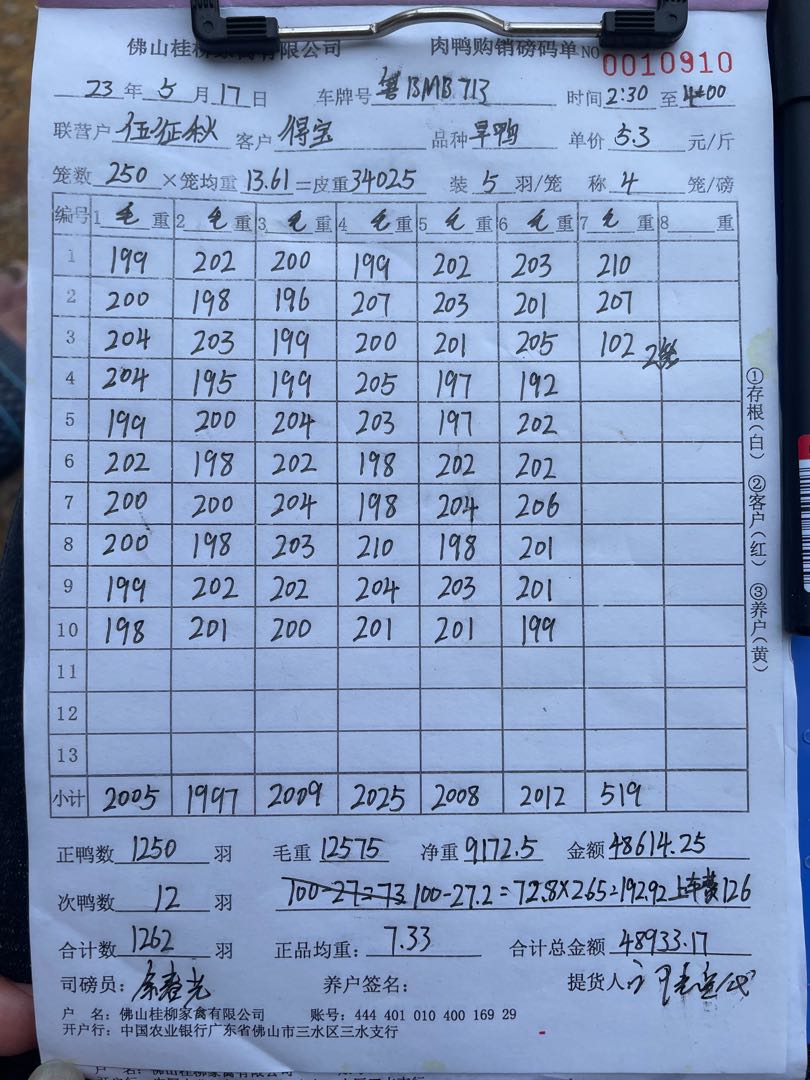 佛山桂柳家禽有限公司 肉鸭购销磅码单 NO 0010910
23 年 5 月 17 日 车牌号 粤BMB713 时间 2:30 至 4:00
联营户 伍征秋 客户 得宝 品种 旱鸭 单价 5.3 元/斤
笼数 250 ×笼均重 13.61 =皮重 3402.5 装 5 羽/笼 称 4 笼/磅
编号 1 毛 重 2 毛 重 3 毛 重 4 毛 重 5 毛 重 6 毛 重 7 毛 重 8 重
1 199 202 200 199 202 203 210
2 200 198 196 207 203 201 207
3 204 203 199 200 201 205 102 2笼
4 204 195 199 205 197 192
5 199 200 204 203 197 202
6 202 198 202 198 202 202
7 200 200 204 198 204 206
8 200 198 203 210 198 201
9 199 202 202 204 203 201
10 198 201 200 201 201 199
11
12
13
小计 2005 1997 2009 2025 2008 2012 519
正鸭数 1250 羽 毛重 12575 净重 9172.5 金额 48614.25
次鸭数 12 羽 100-27=73 100-27.2=72.8×2.65=192.92 上车费126
合计数 1262 羽 正品均重: 7.33 合计总金额 48933.17
司磅员: 养户签名: 提货人:
户 名: 佛山桂柳家禽有限公司 账号: 444 401 010 400 169 29
开户行: 中国农业银行广东省佛山市三水区三水支行
①存根(白) ②客户(红) ③养户(黄)
户 名: 佛山桂柳家禽有限公司